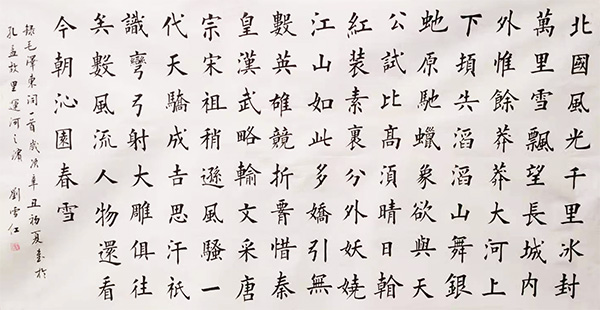 北國風光千里冰封
萬里雪飄望長城内
外惟餘莽莽大河上
下頓失滔滔山舞銀
虵原馳蠟象欲與天
公試比髙湏晴日翰
紅装素裹分外妖嬈
江山如此多嬌引無
數英雄競折惜秦
皇漢武略輸文采唐
宗宋祖稍遜風騷一
代天驕成吉思汗祇
識彎弓射大雕俱往
矣數風流人物還看
今朝沁園春雪
錄毛澤東词一首歲次辛丑初夏书於
孔孟故里運河之濱 劉雪红